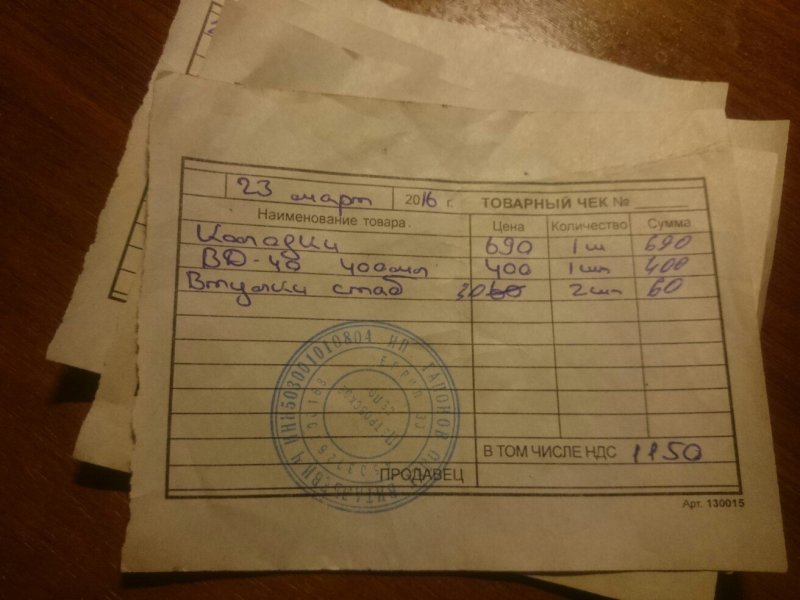 23 март 2016 г. ТОВАРНЫЙ ЧЕК №
Наименование товара. Цена Количество Сумма
Колодки 690 1 ш 690
ВД-40 400мл 400 1шт 400
Втулки стаб 30 60 2шт 60
В ТОМ ЧИСЛЕ НДС 1150
ПРОДАВЕЦ
Арт. 130015
ИНН 503001010804 ИП